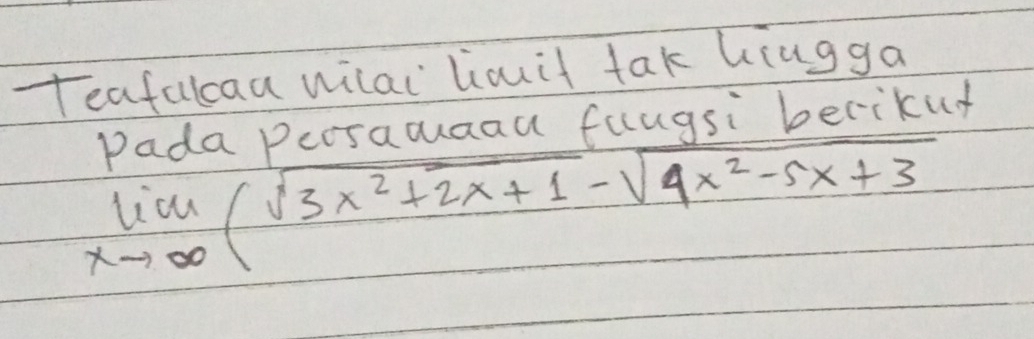 Teafulcaa nilai limit tak hingga
pada persamaan fungsi berikut
lim (√3x²+2x+1 - √4x²-5x+3
x→∞